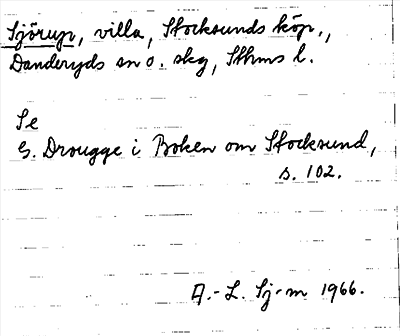 Sjörup, villa, Stocksunds köp.,
Danderyds sn o. skg, Sthms l.
Se
G. Drougge i Boken om Stocksund,
s. 102.
A.-L. Sj-m 1966.